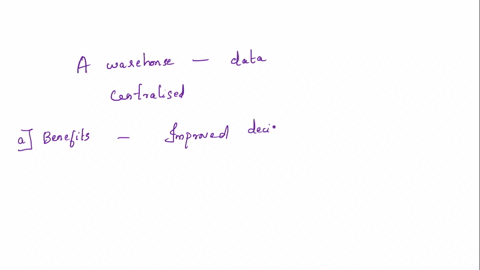 A warehouse — data
centralised
a] Benefits — Improved deci